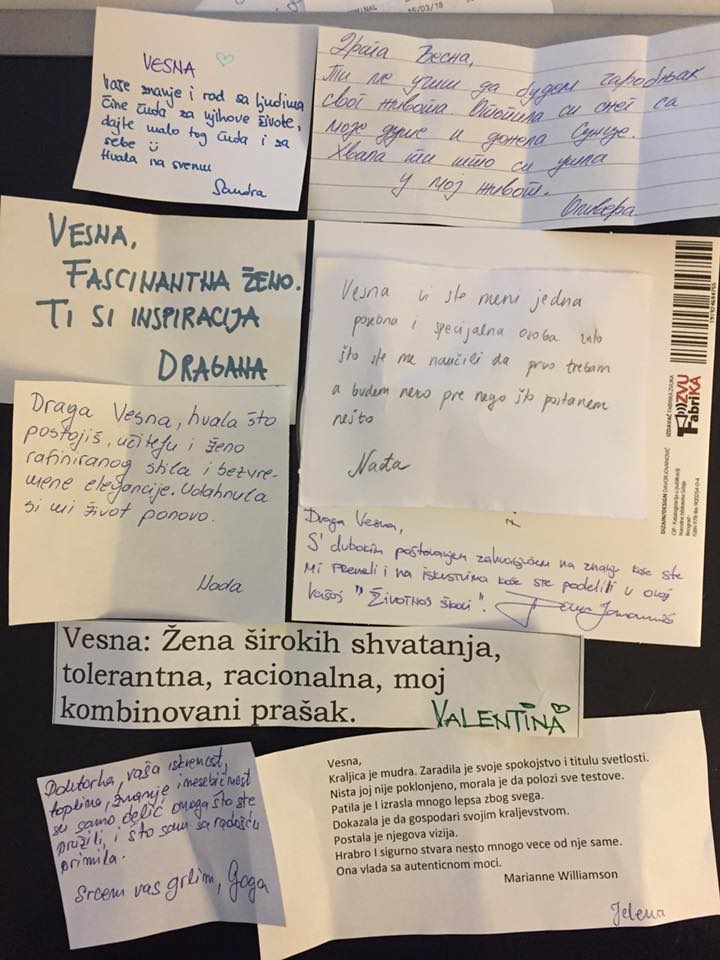 15/03/18
VESNA
Vaše znanje i rad sa ljudima
čine čuda za njihove živote,
dajte malo tog čuda i za
sebe
Hvala na svemu
Sandra
Драга Весна,
Ти ме учиш да будем чаробњак
свог живота. Отопила си снег са
моје душе и донела Сунце.
Хвала ти што си ушла
у мој живот.
Оливера
VESNA,
FASCINANTNA ŽENO.
TI SI INSPIRACIJA
DRAGANA
Vesna vi ste meni jedna
posebna i specijalna osoba zato
što ste me naučili da prvo trebam
a budem neko pre nego što postanem
nešto
Nađa
IZDAVAČ FABRIKA ZVUKA
ZVU
FabriKA
DIZAJN/DESIGN DAVOR JOVANOVIĆ
CIP - Каталогизација у публикацији
Народна библиотека Србије
Београд
Draga Vesna, hvala što
postojiš, učitelju i ženo
rafiniranog stila i bezvre-
mene elegancije. Udahnula
si mi život ponovo.
Nada
Draga Vesna,
S' dubokim poštovanjem zahvaljujem na znanju koje ste
mi preneli i na iskustvima koje ste podelili u ovoj
Vašoj "ŽIVOTNOJ ŠKOLI".
Vesna: Žena širokih shvatanja,
tolerantna, racionalna, moj
kombinovani prašak.
VALENTINA
Doktorka, vaša iskrenost,
toplina, znanje i nesebičnost
su samo delić onoga što ste
pružili, i što sam sa radošću
primila.
Srcem vas grlim, Goga
Vesna,
Kraljica je mudra. Zaradila je svoje spokojstvo i titulu svetlosti.
Nista joj nije poklonjeno, morala je da polozi sve testove.
Patila je I izrasla mnogo lepsa zbog svega.
Dokazala je da gospodari svojim kraljevstvom.
Postala je njegova vizija.
Hrabro I sigurno stvara nesto mnogo vece od nje same.
Ona vlada sa autenticnom moci.
Marianne Williamson
Jelena